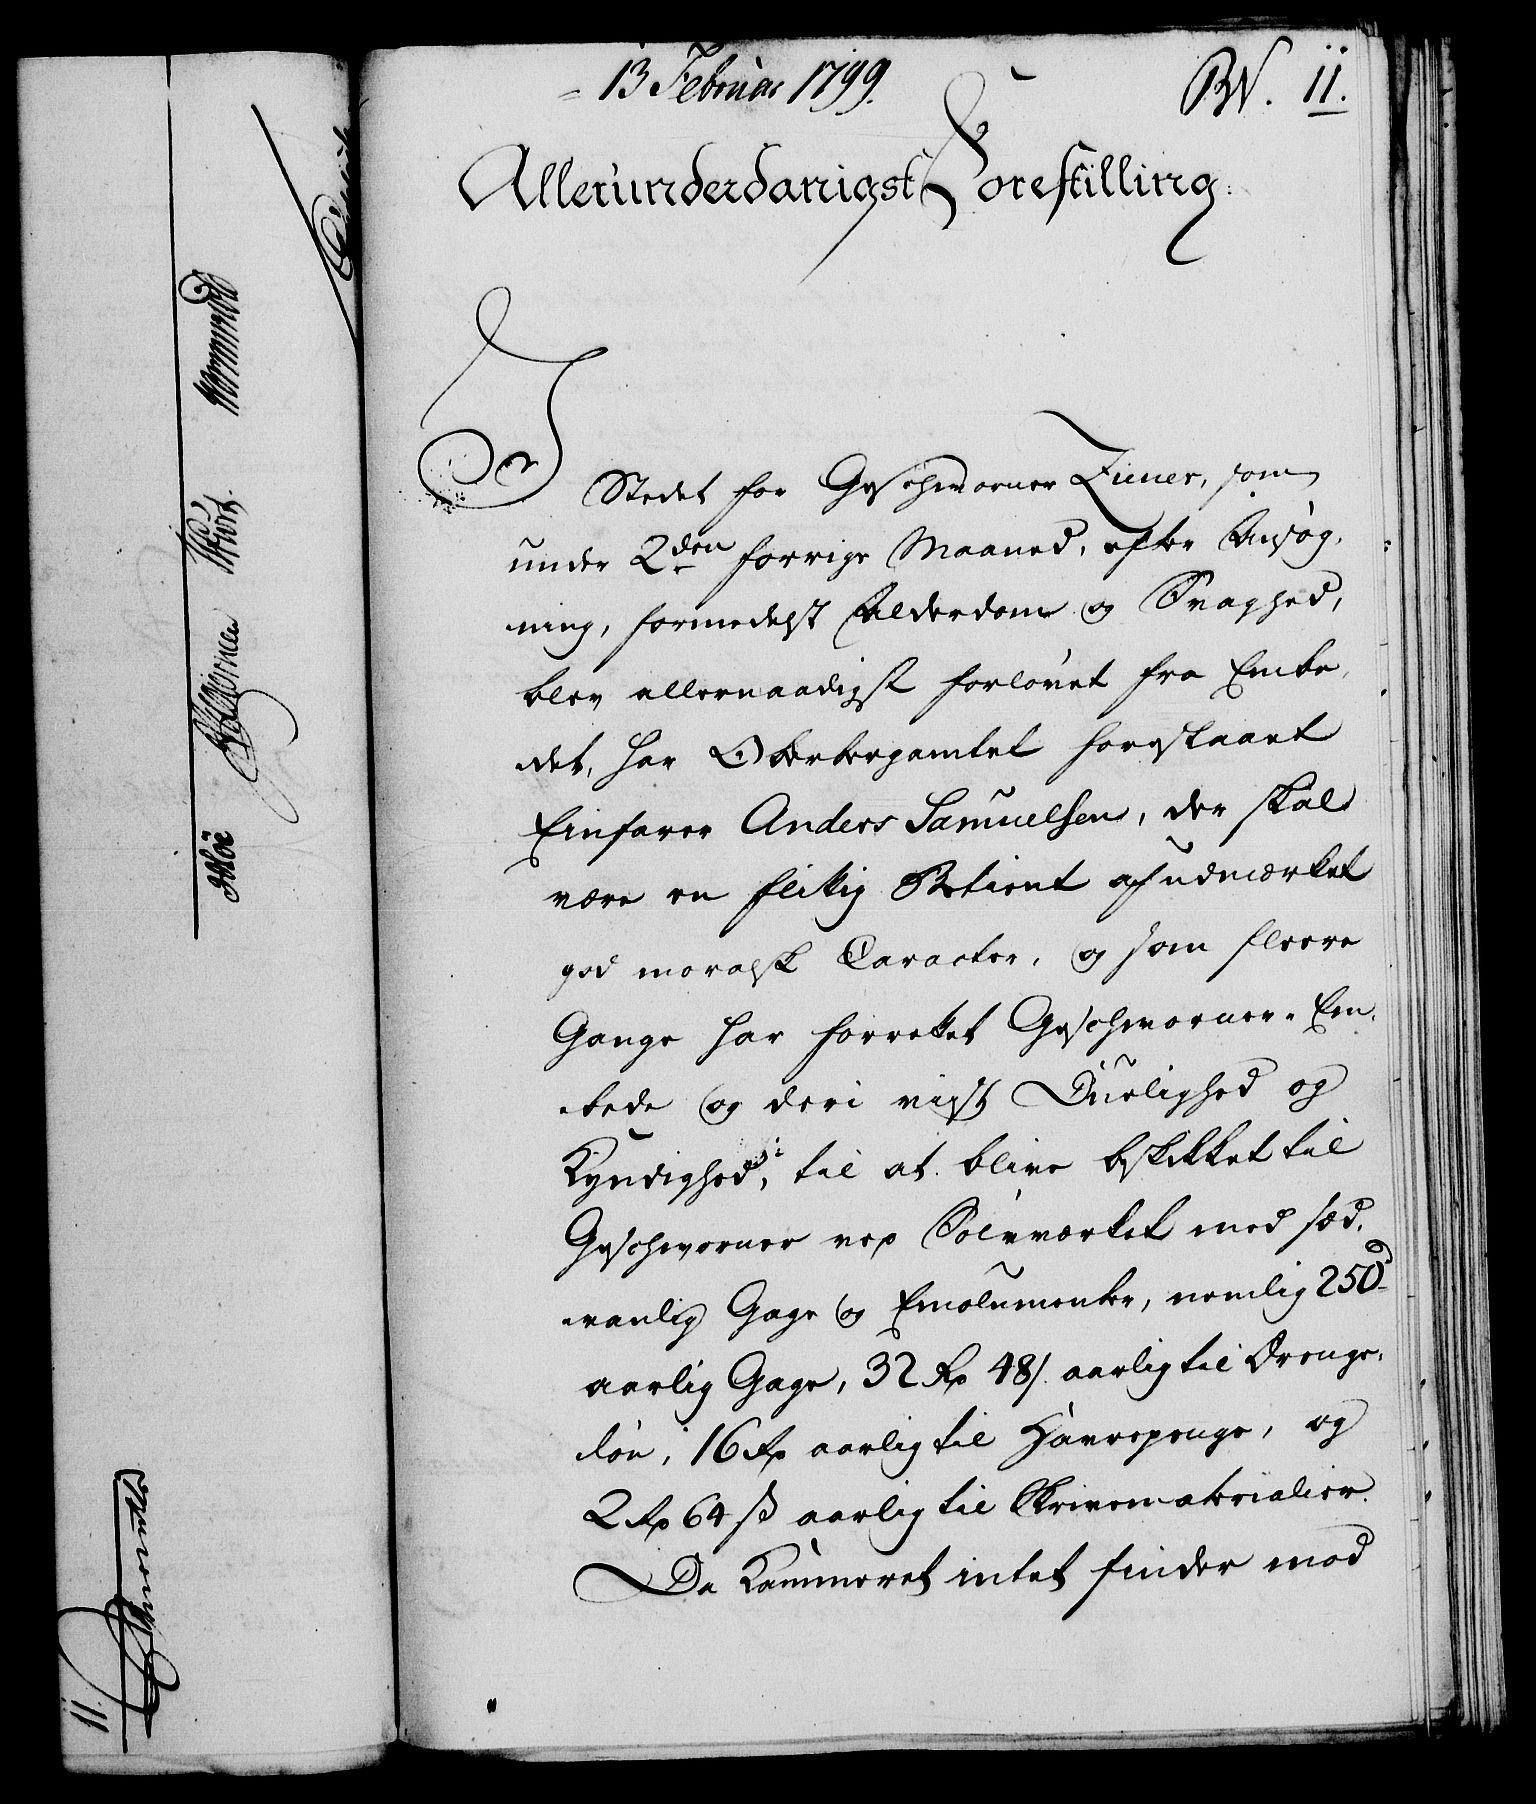 13 Februar 1799.
BW. 11.
Allerunderdanigst Forestilling.
I Stedet for Geschworner Ziener, som
under 2den forrige Maaned, efter Ansøg-
ning, formedelst Alderdom og Svaghed,
blev allernaadigst forlovet fra Embe-
det, har Oberbergamtet foreslaaet
Einfarer Anders Samuelsen, der skal
være en flitig Betient af udmærket
god moralsk Caracter, og som fleere
Gange har forrettet Geschworner-Em-
bede og deri vist Duelighed og
Kyndighed, til at blive beskikket til
Geschworner ved Sølvværket med sæd-
vanlig Gage og Emolumenter, nemlig 250 rd
aarlig Gage, 32 Rd 48 s. aarlig til Drenge-
løn, 16 Rd aarlig til Havrepenge, og
2 Rd 64 ß aarlig til Skrivematerialier.
Da Kammeret intet finder mod
11.